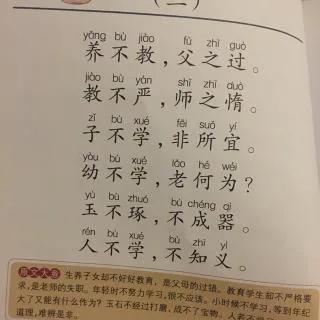 （二）
yǎng bù jiào fù zhī guò
养不教，父之过。
jiào bù yán shī zhī duò
教不严，师之惰。
zǐ bù xué fēi suǒ yí
子不学，非所宜。
yòu bù xué lǎo hé wéi
幼不学，老何为？
yù bù zhuó bù chéng qì
玉不琢，不成器。
rén bù xué bù zhī yì
人不学，不知义。
原文大意 生养子女却不好好教育，是父母的过错。教育学生却不严格要
求，是老师的失职。年轻时不努力学习，很不应该。小时候不学习，等到年纪
大了又能有什么作为？玉石不经过打磨，成不了宝物。人若不学
道理，难辨是非。